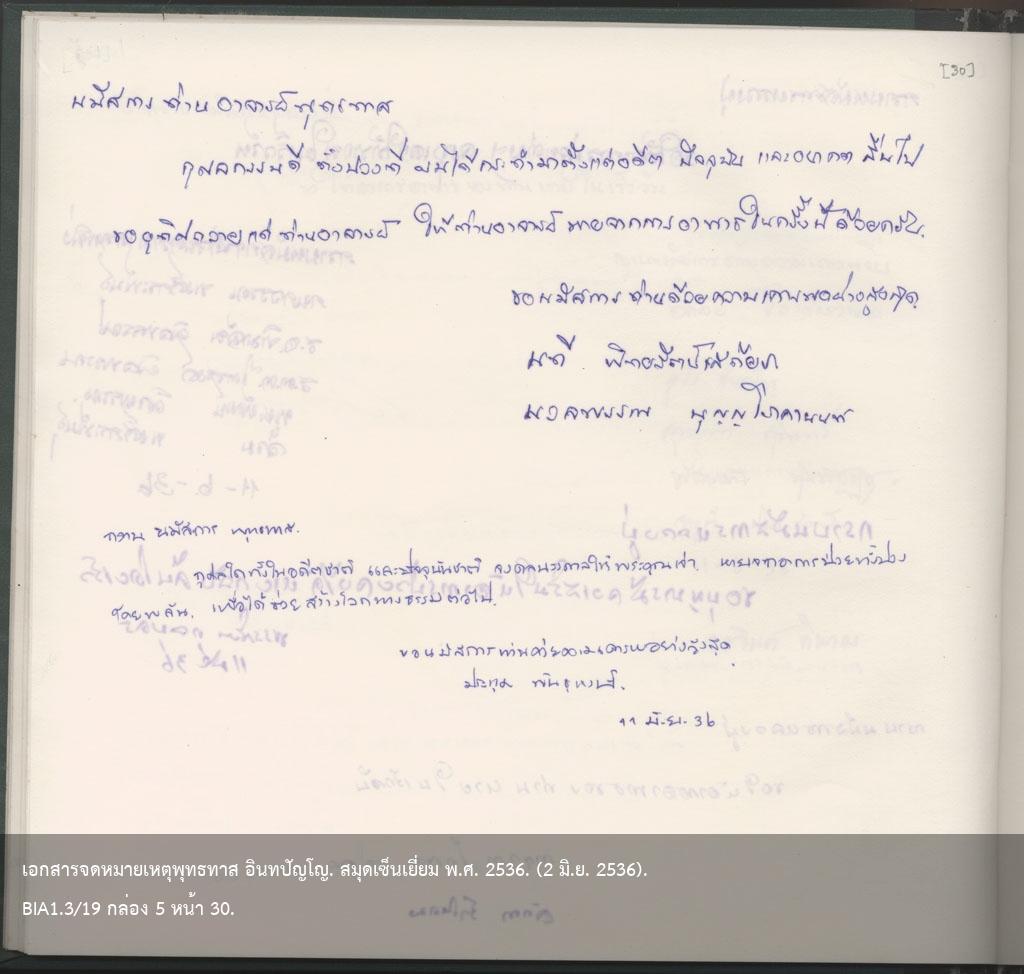 [30]
นมัสการ ท่านอาจารย์พุทธทาส
กุศลกรรมดี ทั้งปวงที่ ได้กระทำมาตั้งแต่อดีต ปัจจุบัน และอนาคต สืบไป
ขออุทิศถวายแด่ท่านอาจารย์ ให้ท่านอาจารย์ หายจากการอาพาธในครั้งนี้ด้วยครับ.
ขอนมัสการท่านด้วยความเคารพอย่างสูงสุด
มงคลพรรณ บุญญโภคานนท์
กราบ นมัสการ พุทธทาส.
กุศลใดทั้งในอดีตชาติ และปัจจุบันชาติ จงดลบันดาลให้พระคุณเจ้า หายจากอาการป่วยทั้งปวง
โดยพลัน. เพื่อได้ช่วยสร้างโลกทางธรรมต่อไป.
ขอนมัสการท่านด้วยความเคารพอย่างสูงสุด
ประทุม
11 มิ.ย. 36
เอกสารจดหมายเหตุพุทธทาส อินทปัญโญ. สมุดเซ็นเยี่ยม พ.ศ. 2536. (2 มิ.ย. 2536).
BIA1.3/19 กล่อง 5 หน้า 30.